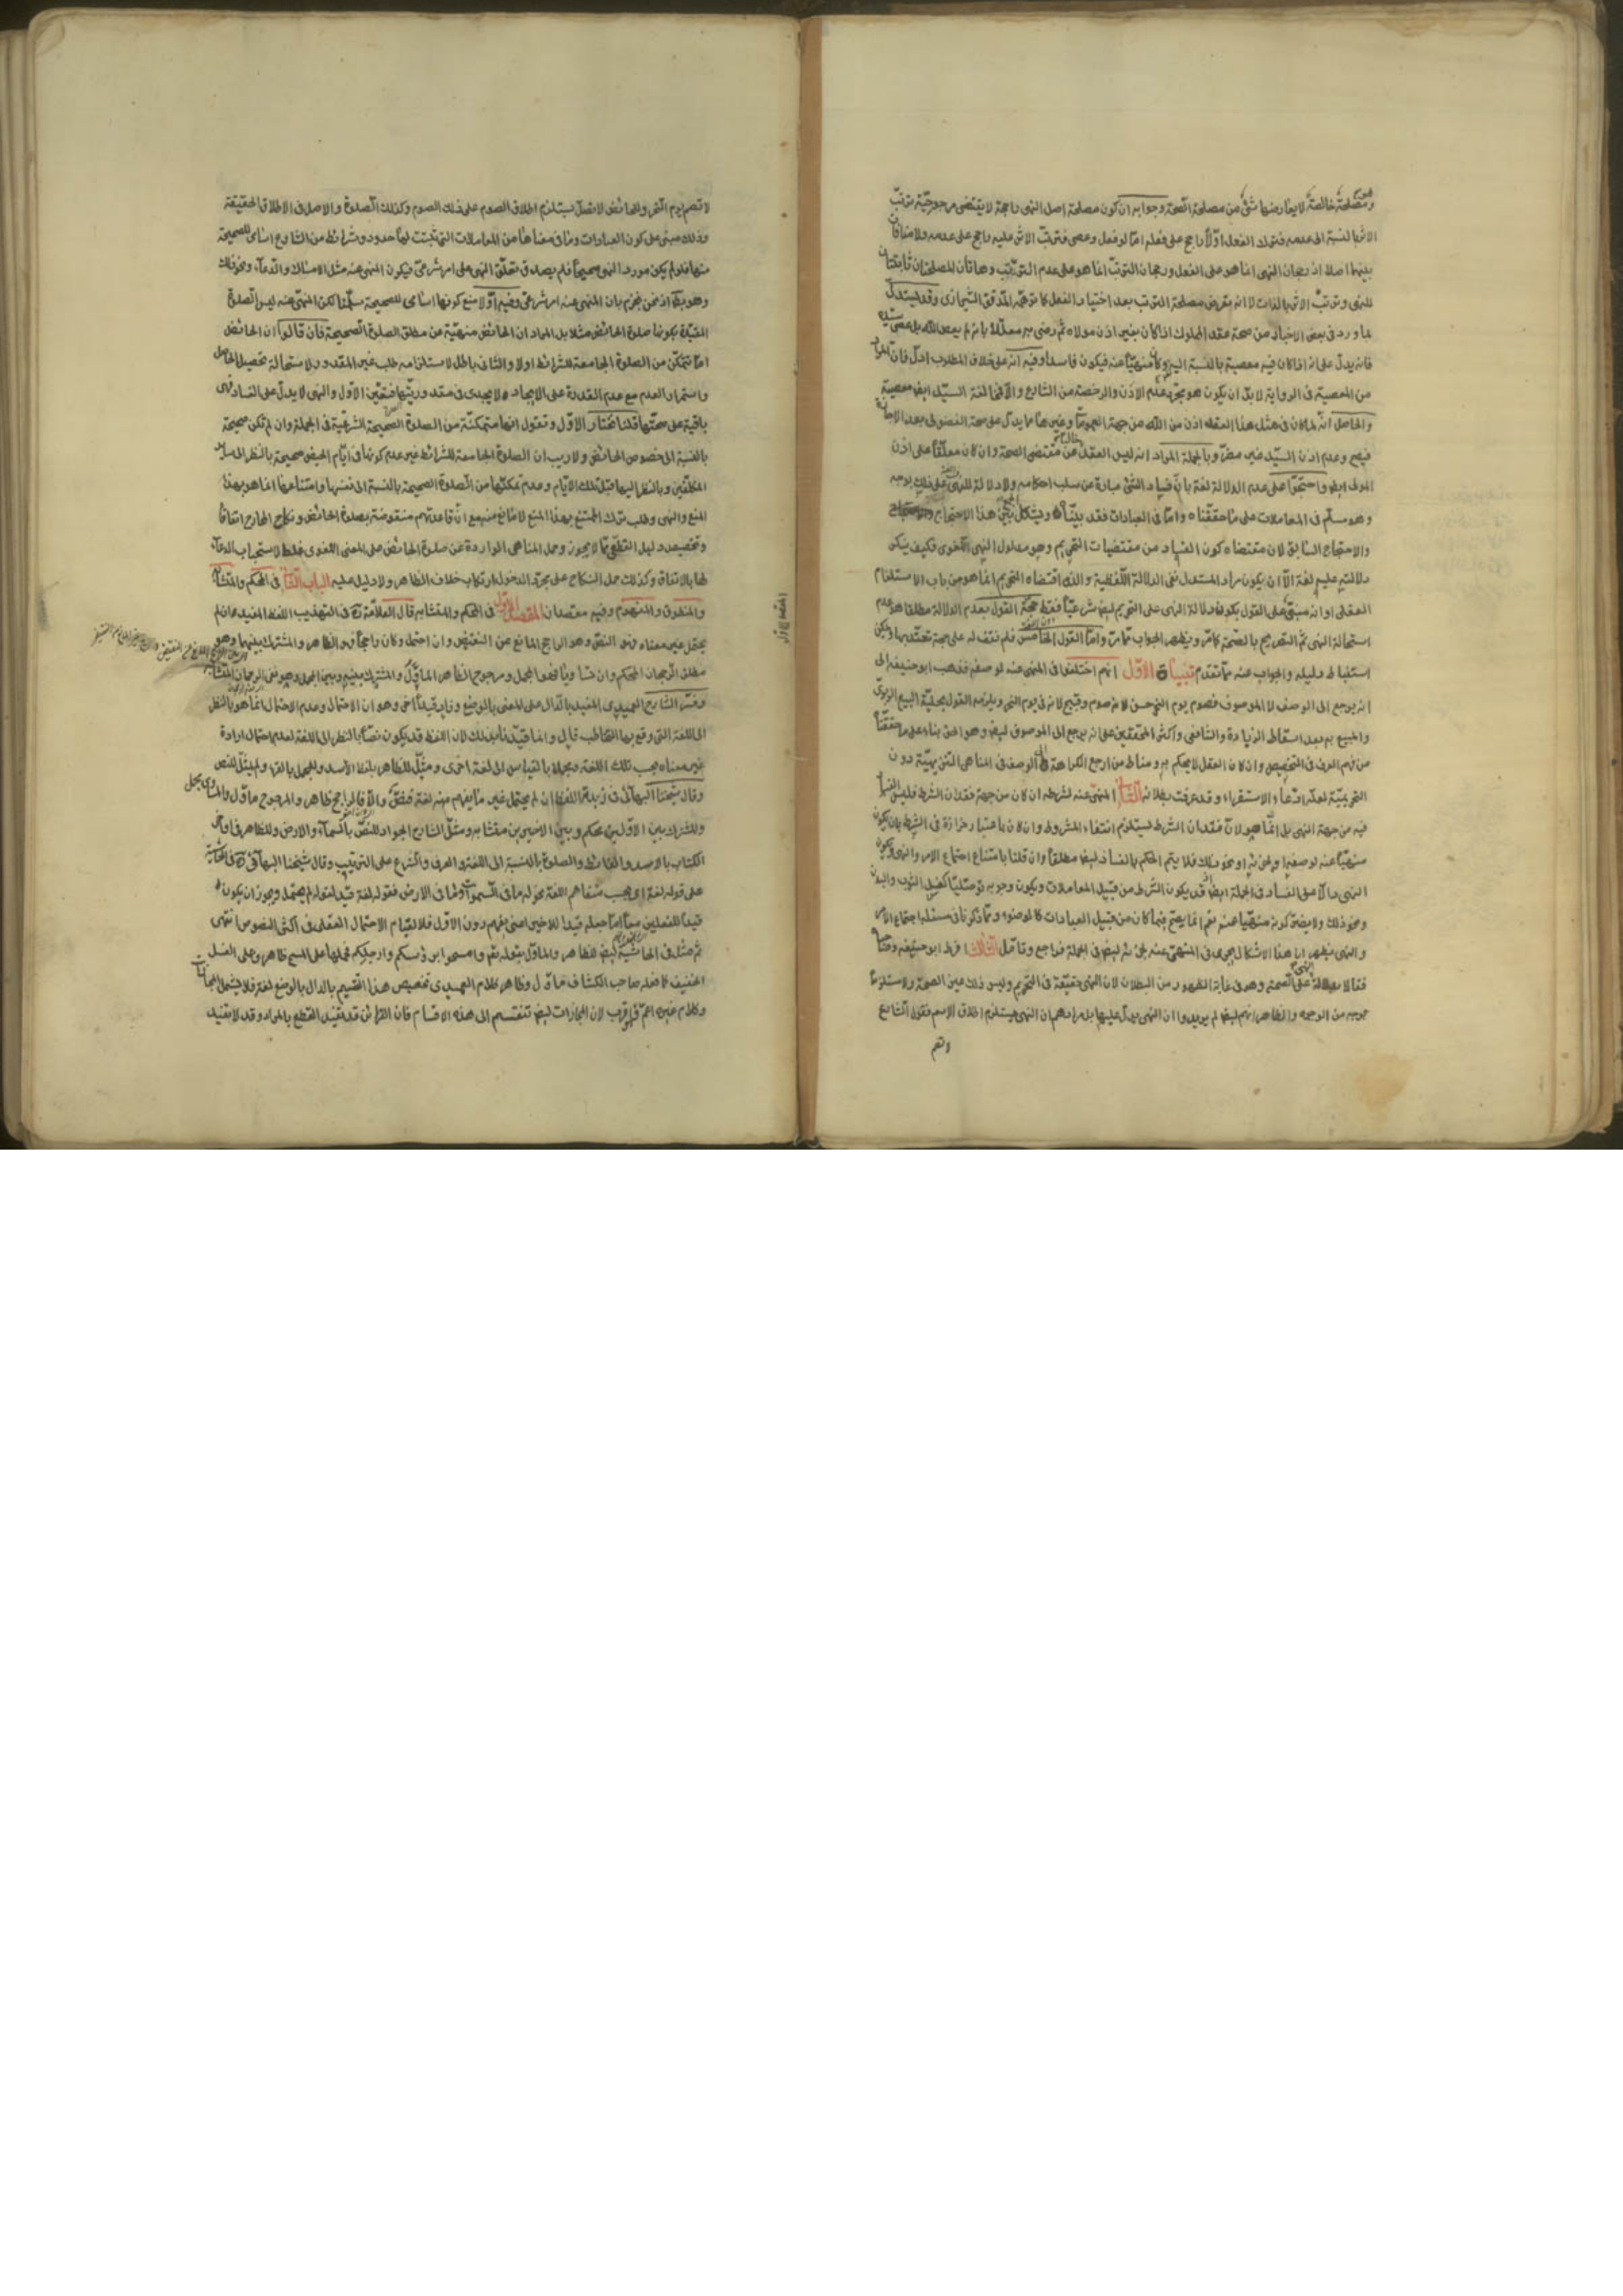 ومصلحة خالصة لا يعارضها شئ من مصلحة الصحة وجوابه ان كون مصلحة اصل النهى راجحة لا يقتضى مرجوحية ترتب
الاثر بالنسبة الى عدمه فترك الفعل اولا راجح على فعله امّا لو فعل وعصى فترتب الاثر عليه راجح على عدمه ولا منافاة
بينهما اصلا اذ رجحان النهى انما هو على الفعل ورجحان الترتب انما هو على عدم الترتب وهاتان المصلحتان ثابتتان
للنهى وترتب الاثر بالذات لا انه يعرض مصلحة الترتب بعد اختيار الفعل كما توهمه المدقق الشيرازى وقد يستدل
بما ورد فى بعض الاخبار من صحة عقد المملوك اذا كان بغير اذن مولاه ثم رضى به معللا بانه لم يعص الله بل عصى سيده
فانه يدل على انه اذا كان فيه معصية بالنسبة اليه وكان منهيا عنه فيكون فاسدا وفيه انه على خلاف المطلوب ادل فان المراد
من المعصية فى الرواية لا بد ان يكون هو مجرد عدم الاذن والرخصة من الشارع والا فمخالفة السيد ايضا معصية
والحاصل انه لما كان فى مثل هذا العقد اذن من الله من جهة العموما وغيرها مما يدل على صحة الفضولى بعد الاجازة
فيصح وعدم اذن السيد غير مضر وبالجملة المراد انه ليس العقد خاليا عن مقتضى الصحة وان كان معلقا على اذن
المولى ايضا واحتجوا على عدم الدلالة لغة بان فساد الشئ عبارة عن سلب احكامه ولا دلالة للنهى على ذلك بوجه
وهو مسلم فى المعاملات على ما حققناه وامّا فى العبادات فقد بيّناه ويشكل الجمع بين هذا الاحتجاج
والاحتجاج السابق لان مقتضاه كون الفساد من مقتضيات التحريم وهو مدلول النهى اللغوى فكيف ينكر
دلالته عليه لغة الّا ان يكون مراد المستدل نفى الدلالة اللفظية والذى اقتضاه التحريم انما هو من باب الاستلزام
العقلى او انه مبنى على القول بكون دلالة النهى على التحريم ايضا شرعيا فقط حجة القول بعدم الدلالة مطلقا هو عدم
استحالة النهى ثم التصريح بالصحة كما مر ويظهر الجواب مما مر وامّا القول الخامس فلم نقف له على حجة يعتد بها ويمكن
استنباط دليله والجواب عنه مما تقدم تنبيهات الاول انهم اختلفوا فى المنهى عنه لوصفه فذهب ابو حنيفة الى
انه يرجع الى الوصف لا الموصوف فصوم يوم النحر حسن لانه صوم وقبيح لانه فى يوم النحر ويلزمه القول بحلية البيع الربوى
والمبيع به بعد اسقاط الزيادة والشافعى واكثر المحققين على انه يرجع الى الموصوف ايضا وهو الحق بناء على ما حققنا
من فهم العرف فى التخصيص وان كان العقل لا يحكم به ومناط من ارجع الكراهة الى الوصف فى المناهى التنزيهية دون
التحريمية لعله ادعاء الاستقراء وقد عرفت بطلانه الثانى المنهى عنه لشرطه ان كان من جهة فقدان الشرط فليس الفساد
فيه من جهة النهى بل انما هو لان فقدان الشرط يستلزم انتفاء المشروط وان كان باعتبار حزازة فى الشرط بان يكون
منهيا عنه لوصفه او لجزئه او نحو ذلك فلا يتم الحكم بالفساد ايضا مطلقا وان قلنا بامتناع اجتماع الامر والنهى وبكون
النهى دالا على الفساد فى الجملة ايضا اذ قد يكون الشرط من قبيل المعاملات ويكون وجوبه توصليا كغسل الثوب والبدن
ونحو ذلك ولا يضره كونه منهيا عنه نعم انما يصح فيما كان من قبيل العبادات كالوضوء ومما ذكرنا فى مسئلة اجتماع الامر
والنهى يظهر ان هذا الاشكال يجرى فى المنهى عنه لجزئه ايضا فى الجملة فراجع وتامل الثالث افرط ابو حنيفة وصاحباه
فقالا بدلالة النهى على الصحة وهو فى غاية الظهور من البطلان لان النهى حقيقة فى التحريم وليس ذلك عين الصحة ولا مستلزما
بوجه من الوجوه والظاهر انهم ايضا لم يريدوا ان النهى يدل عليها بل مرادهم ان النهى يستلزم اطلاق الاسم فقول الشارع
لا تصم
لا تصم يوم النحر وللحائض لا تصل يستلزم اطلاق الصوم على ذلك الصوم وكذلك الصلوة والاصل فى الاطلاق الحقيقة
وذلك مبنى على كون العبادات وما فى معناها من المعاملات التى ثبتت لها حدود وشرائط من الشارع اسامى للصحيحة
منها فلو لم يكن مورد النهى صحيحا فلم يصدق تعلق النهى على امر شرعى فيكون المنهى عنه مثل الامساك والدعاء ونحو ذلك
وهو بط اذ نحن نجزم بان المنهى عنه امر شرعى وفيه اولا منع كونها اسامى للصحيحة سلمنا لكن المنهى عنه ليس الصلوة
المقيدة بكونها صلوة الحائض مثلا بل المراد ان الحائض منهية عن مطلق الصلوة الصحيحة فان قالوا ان الحائض
امّا تتمكن من الصلوة الجامعة للشرائط اولا والثانى باطل لاستلزامه طلب غير المقدور ولاستحالة تحصيل الحاصل
واستمرار العدم مع عدم القدرة على الايجاد لا يجدى فى مقدوريتها فتعين الاول والنهى لا يدل على الفساد فهى
باقية على صحتها قلنا نختار الاول ونقول انها متمكنة من الصلوة الصحيحة الشرعية فى الجملة وان لم تكن صحيحة
بالنسبة الى خصوص الحائض ولا ريب ان الصلوة الجامعة للشرائط غير عدم كونها فى ايام الحيض صحيحة بالنظر الى ساير
المكلفين وبالنظر اليها قبل تلك الايام وعدم تمكنها من الصلوة الصحيحة بالنسبة الى نفسها وامتناعها انما هو بهذا
المنع والنهى وطلب ترك الممتنع بهذا المنع لا مانع منه مع ان قاعدتهم منقوضة بصلوة الحائض ونكاح المحارم اتفاقا
وتخصيص دليل القطعى مما لا يجوز وحمل المناهى الواردة عن صلوة الحائض على المعنى اللغوى غلط لاستحباب الدعاء
لها بالاتفاق وكذلك حمل النكاح على مجرد الدخول ارتكاب خلاف الظاهر ولا دليل عليه الباب الثانى فى المحكم والمتشابه
والمنطوق والمفهوم وفيه مقصدان المقصد الاول فى المحكم والمتشابه قال العلامة ره فى التهذيب اللفظ المفيد ان لم
يحتمل غير معناه فهو النص وهو الراجح المانع من النقيض وان احتمل وكان راجحا فهو الظاهر والمشترك بينهما وهو
مطلق الرجحان المحكم وان تساويا فهو المجمل ومرجوح الظاهر الماوّل والمشترك بينه وبين المجمل وهو نفى الرجحان المتشابه
وفسّر الشارح العميدى المفيد بالدال على المعنى بالوضع وزاد قيدا اخر وهو ان الاحتمال وعدم الاحتمال انما هو بالنظر
الى اللغة التى وقع بها التخاطب قال وانما قيدنا بذلك لان اللفظ قد يكون نصا بالنظر الى اللغة لعدم احتمال ارادة
غير معناه بحسب تلك اللغة ومجملا بالقياس الى لغة اخرى ومثّل للظاهر بلفظ الاسد وللمجمل بالقرء ولم يمثل للنص
وقال شيخنا البهائى فى زبدة اللفظ ان لم يحتمل غير ما يفهم منه لغة فنصّ والا فالراجح ظاهر والمرجوح ماوّل والمساوى مجمل
والمشترك بين الاولين محكم وبين الاخيرين متشابه ومثّل الشارح الجواد للنص بالسماء والارض وللظاهر فى اوائل
الكتاب بالاسد والغائط والصلوة بالنسبة الى اللغة والعرف والشرع على الترتيب وقال شيخنا البهائى ره فى الحاشية
على قوله لغة اى بحسب متفاهم اللغة نحو له ما فى السموات وما فى الارض فقوله لغة قيد لقوله لم يحتمل ويجوز ان يكون
قيدا للفعلين معا امّا جعله قيدا للاخير اعنى يفهم دون الاول فلا لقيام الاحتمال العقلى فى اكثر النصوص انتهى
ثم مثل فى الحاشية ايضا للظاهر والماوّل بقوله تعم وامسحوا برؤسكم وارجلكم فحملها على المسح ظاهر وعلى الغسل
الخفيف كما فعله صاحب الكشاف ماوّل وظاهر كلام العميدى تخصيص هذا التقسيم بالدال بالوضع لغة فلا يشمل المجازات
وكلام غيره اعمّ وهو اقرب لان المجازات ايضا تنقسم الى هذه الاقسام فان القرائن قد تفيد القطع بالمراد وقد لا تفيد